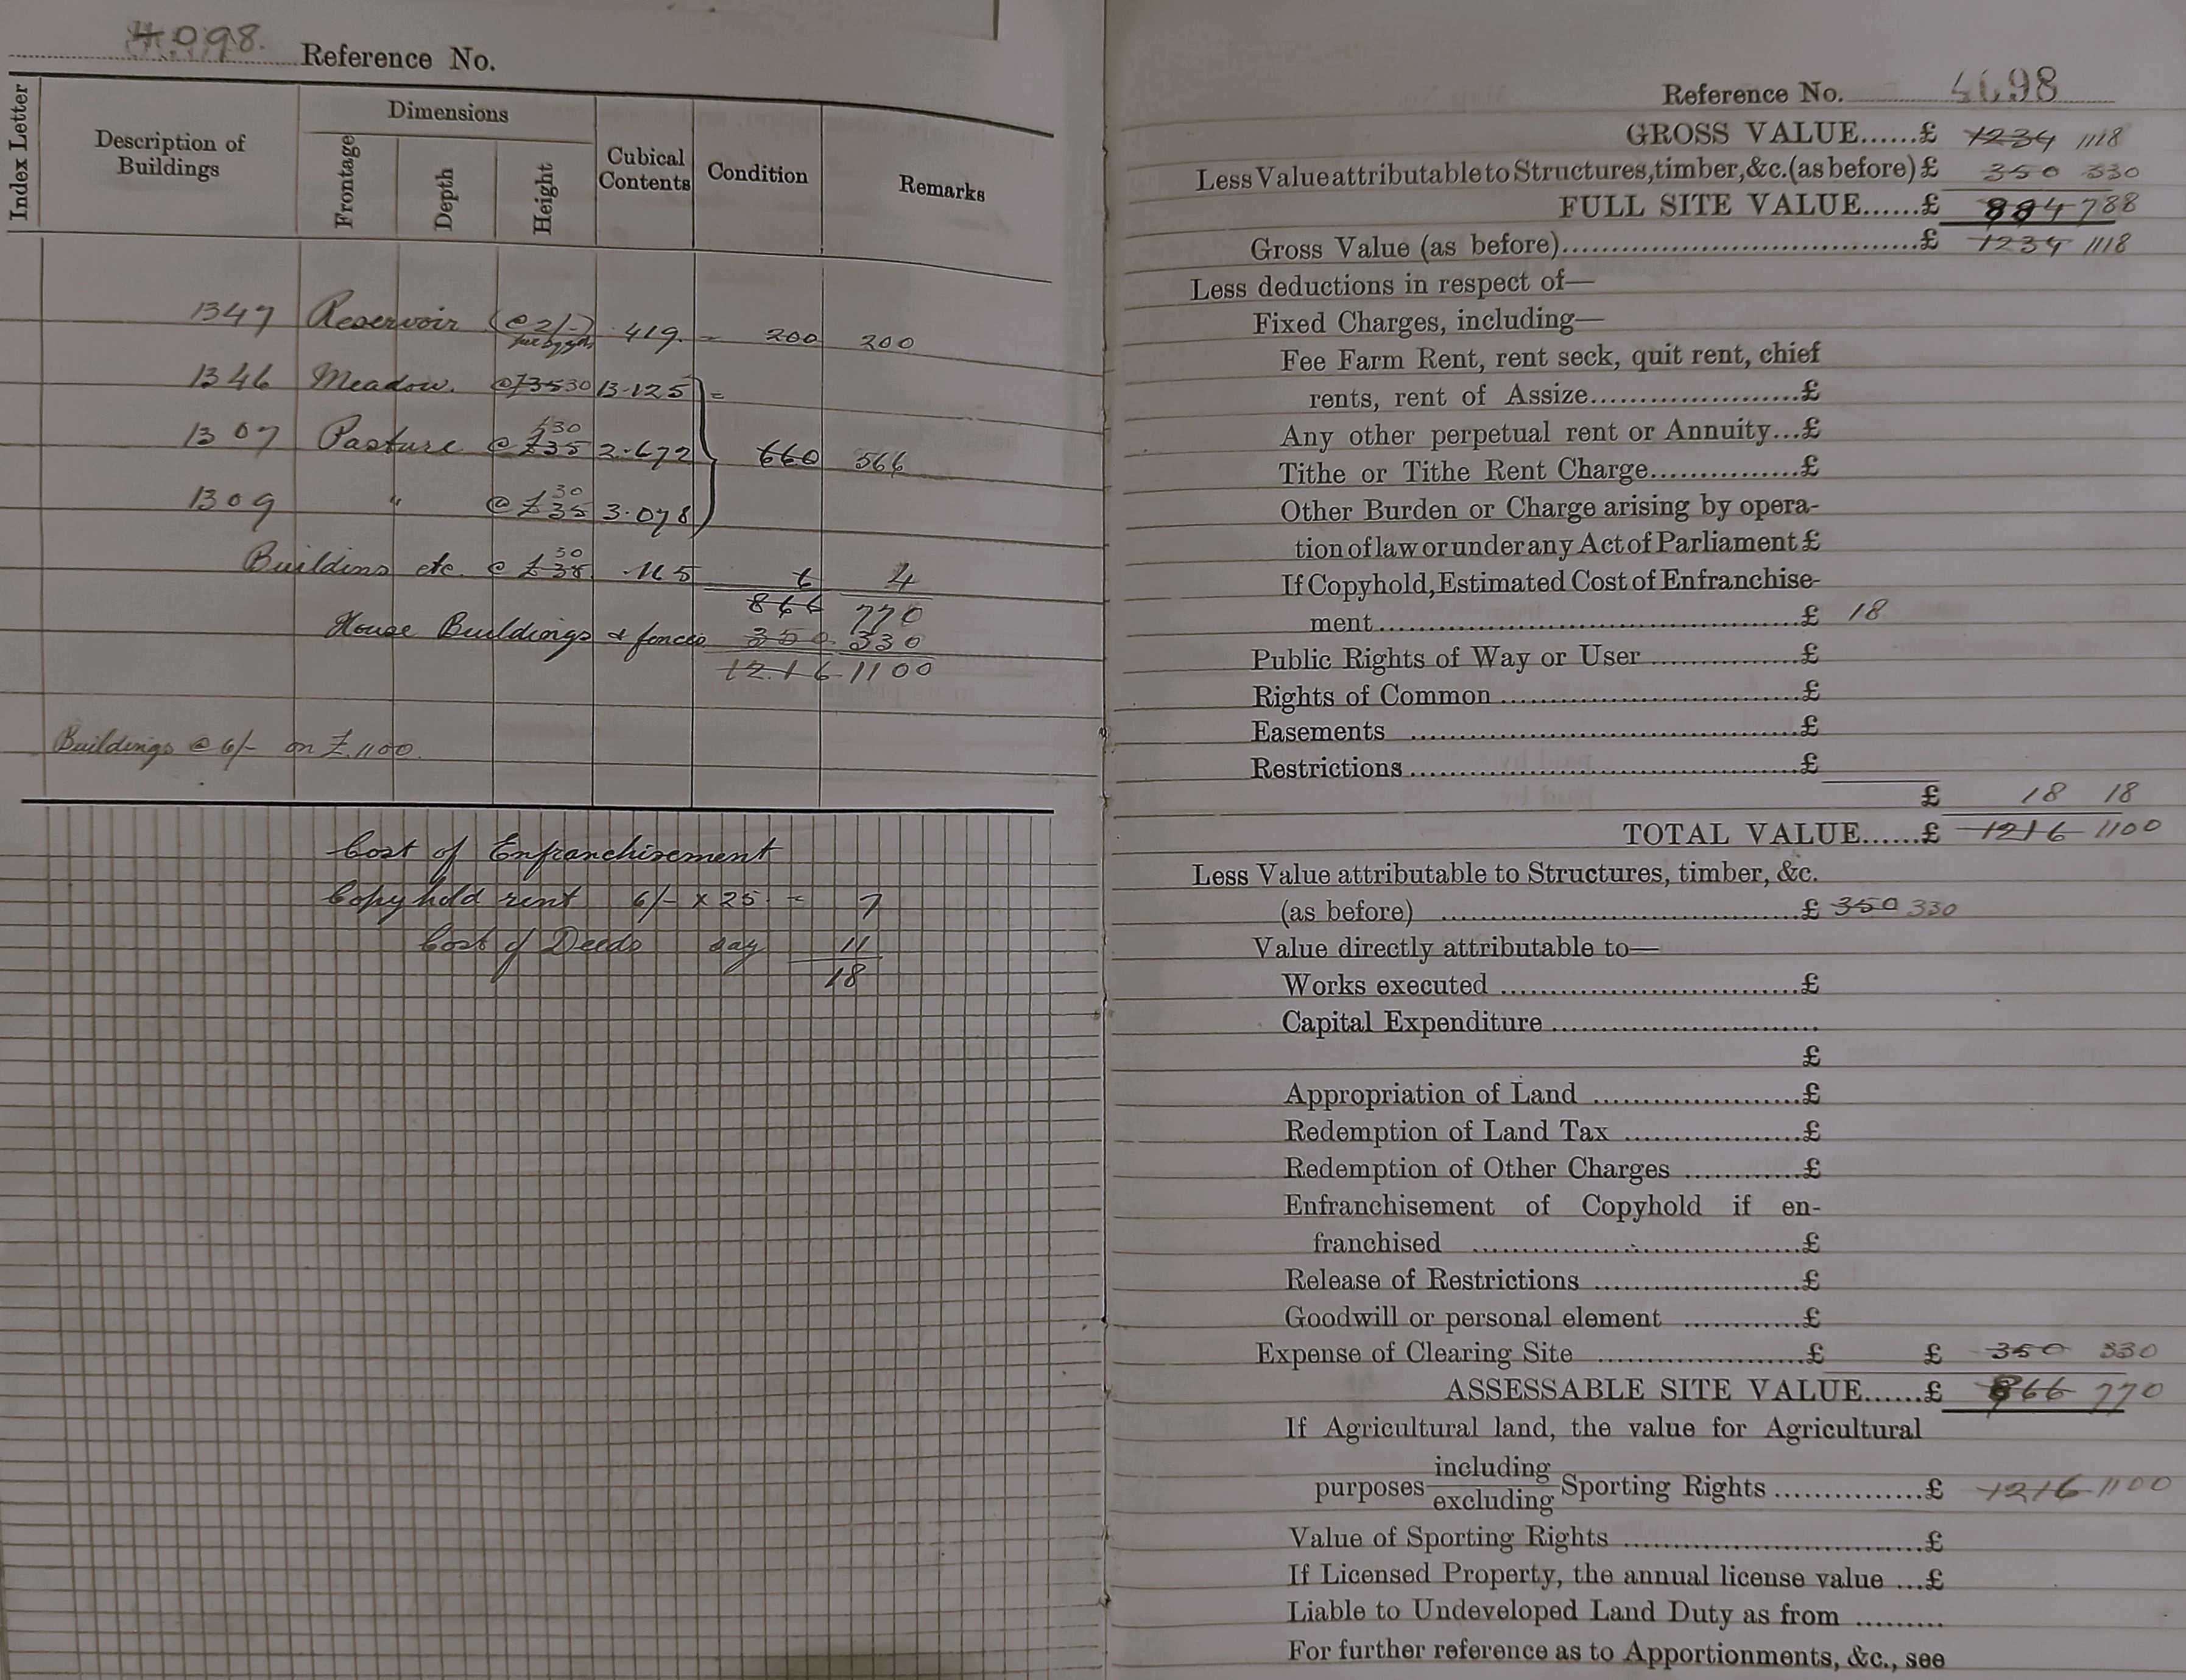 4098. Reference No.
Index Letter
Description of Buildings
Dimensions
Frontage
Depth
Height
Cubical Contents
Condition
Remarks
1347 Reservoir (@ 2/-) .419. = 200 200
1346 Meadow. @ £35 30 13.125 =
£30
1307 Pasture @ £35 2.672 660 566
30
1309 " @ £35 3.078
30
Buildins etc. @ £35 .165 6 4
866 770
House Buildings & fences 350. 330
1216 1100
Buildings @ 6/- on £1100.
Cost of Enfranchisement
Copyhold rent 6/- x 25 = 7
Cost of Deeds say 11
18
Reference No. 4098
GROSS VALUE......£ 1234 1118
Less Value attributable to Structures, timber, &c. (as before) £ 350 330
FULL SITE VALUE......£ 884 788
Gross Value (as before)..........£ 1234 1118
Less deductions in respect of—
Fixed Charges, including—
Fee Farm Rent, rent seck, quit rent, chief
rents, rent of Assize..........£
Any other perpetual rent or Annuity...£
Tithe or Tithe Rent Charge..........£
Other Burden or Charge arising by opera-
tion of law or under any Act of Parliament £
If Copyhold, Estimated Cost of Enfranchise-
ment..........£ 18
Public Rights of Way or User..........£
Rights of Common..........£
Easements..........£
Restrictions..........£
£ 18 18
TOTAL VALUE......£ 1216 1100
Less Value attributable to Structures, timber, &c.
(as before)..........£ 350 330
Value directly attributable to—
Works executed..........£
Capital Expenditure..........
£
Appropriation of Land..........£
Redemption of Land Tax..........£
Redemption of Other Charges..........£
Enfranchisement of Copyhold if en-
franchised..........£
Release of Restrictions..........£
Goodwill or personal element..........£
Expense of Clearing Site..........£ £ 350 330
ASSESSABLE SITE VALUE......£ 866 770
If Agricultural land, the value for Agricultural
including
purposes Sporting Rights..........£ 1216 1100
excluding
Value of Sporting Rights..........£
If Licensed Property, the annual license value ...£
Liable to Undeveloped Land Duty as from .........
For further reference as to Apportionments, &c., see